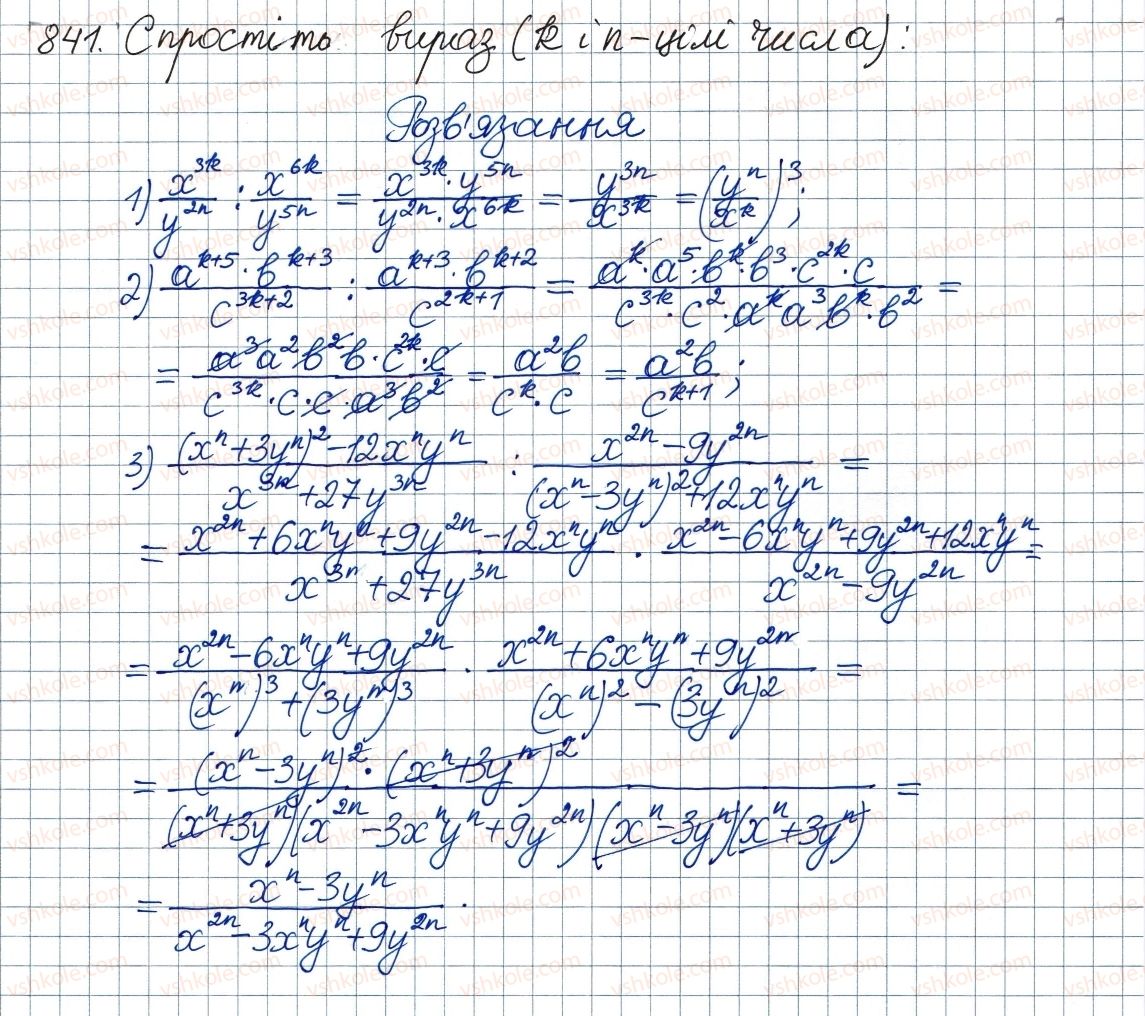 841. Спростіть вираз (k і n – цілі числа):
Розв'язання
1) x^{3k}/y^{2n} : x^{6k}/y^{5n} = (x^{3k} · y^{5n})/(y^{2n} · x^{6k}) = y^{3n}/x^{3k} = (y^n/x^k)^3;
2) (a^{k+5} · b^{k+3})/c^{3k+2} : (a^{k+3} · b^{k+2})/c^{2k+1} = (a^k · a^5 · b^k · b^3 · c^{2k} · c)/(c^{3k} · c^2 · a^k a^3 b^k · b^2) =
= (a^3 a^2 b^2 b · c^{2k} · c)/(c^{3k} · c · c · a^3 b^2) = a^2 b/(c^k · c) = a^2 b/c^{k+1};
3) ((x^n + 3y^n)^2 – 12x^n y^n)/(x^{3n} + 27y^{3n}) : (x^{2n} – 9y^{2n})/((x^n – 3y^n)^2 + 12x^n y^n) =
= (x^{2n} + 6x^n y^n + 9y^{2n} – 12x^n y^n)/(x^{3n} + 27y^{3n}) · (x^{2n} – 6x^n y^n + 9y^{2n} + 12x^n y^n)/(x^{2n} – 9y^{2n}) =
= (x^{2n} – 6x^n y^n + 9y^{2n})/((x^n)^3 + (3y^n)^3) · (x^{2n} + 6x^n y^n + 9y^{2n})/((x^n)^2 – (3y^n)^2) =
= ((x^n – 3y^n)^2 · (x^n + 3y^n)^2)/((x^n + 3y^n)(x^{2n} – 3x^n y^n + 9y^{2n})(x^n – 3y^n)(x^n + 3y^n)) =
= (x^n – 3y^n)/(x^{2n} – 3x^n y^n + 9y^{2n}).
vshkole.com